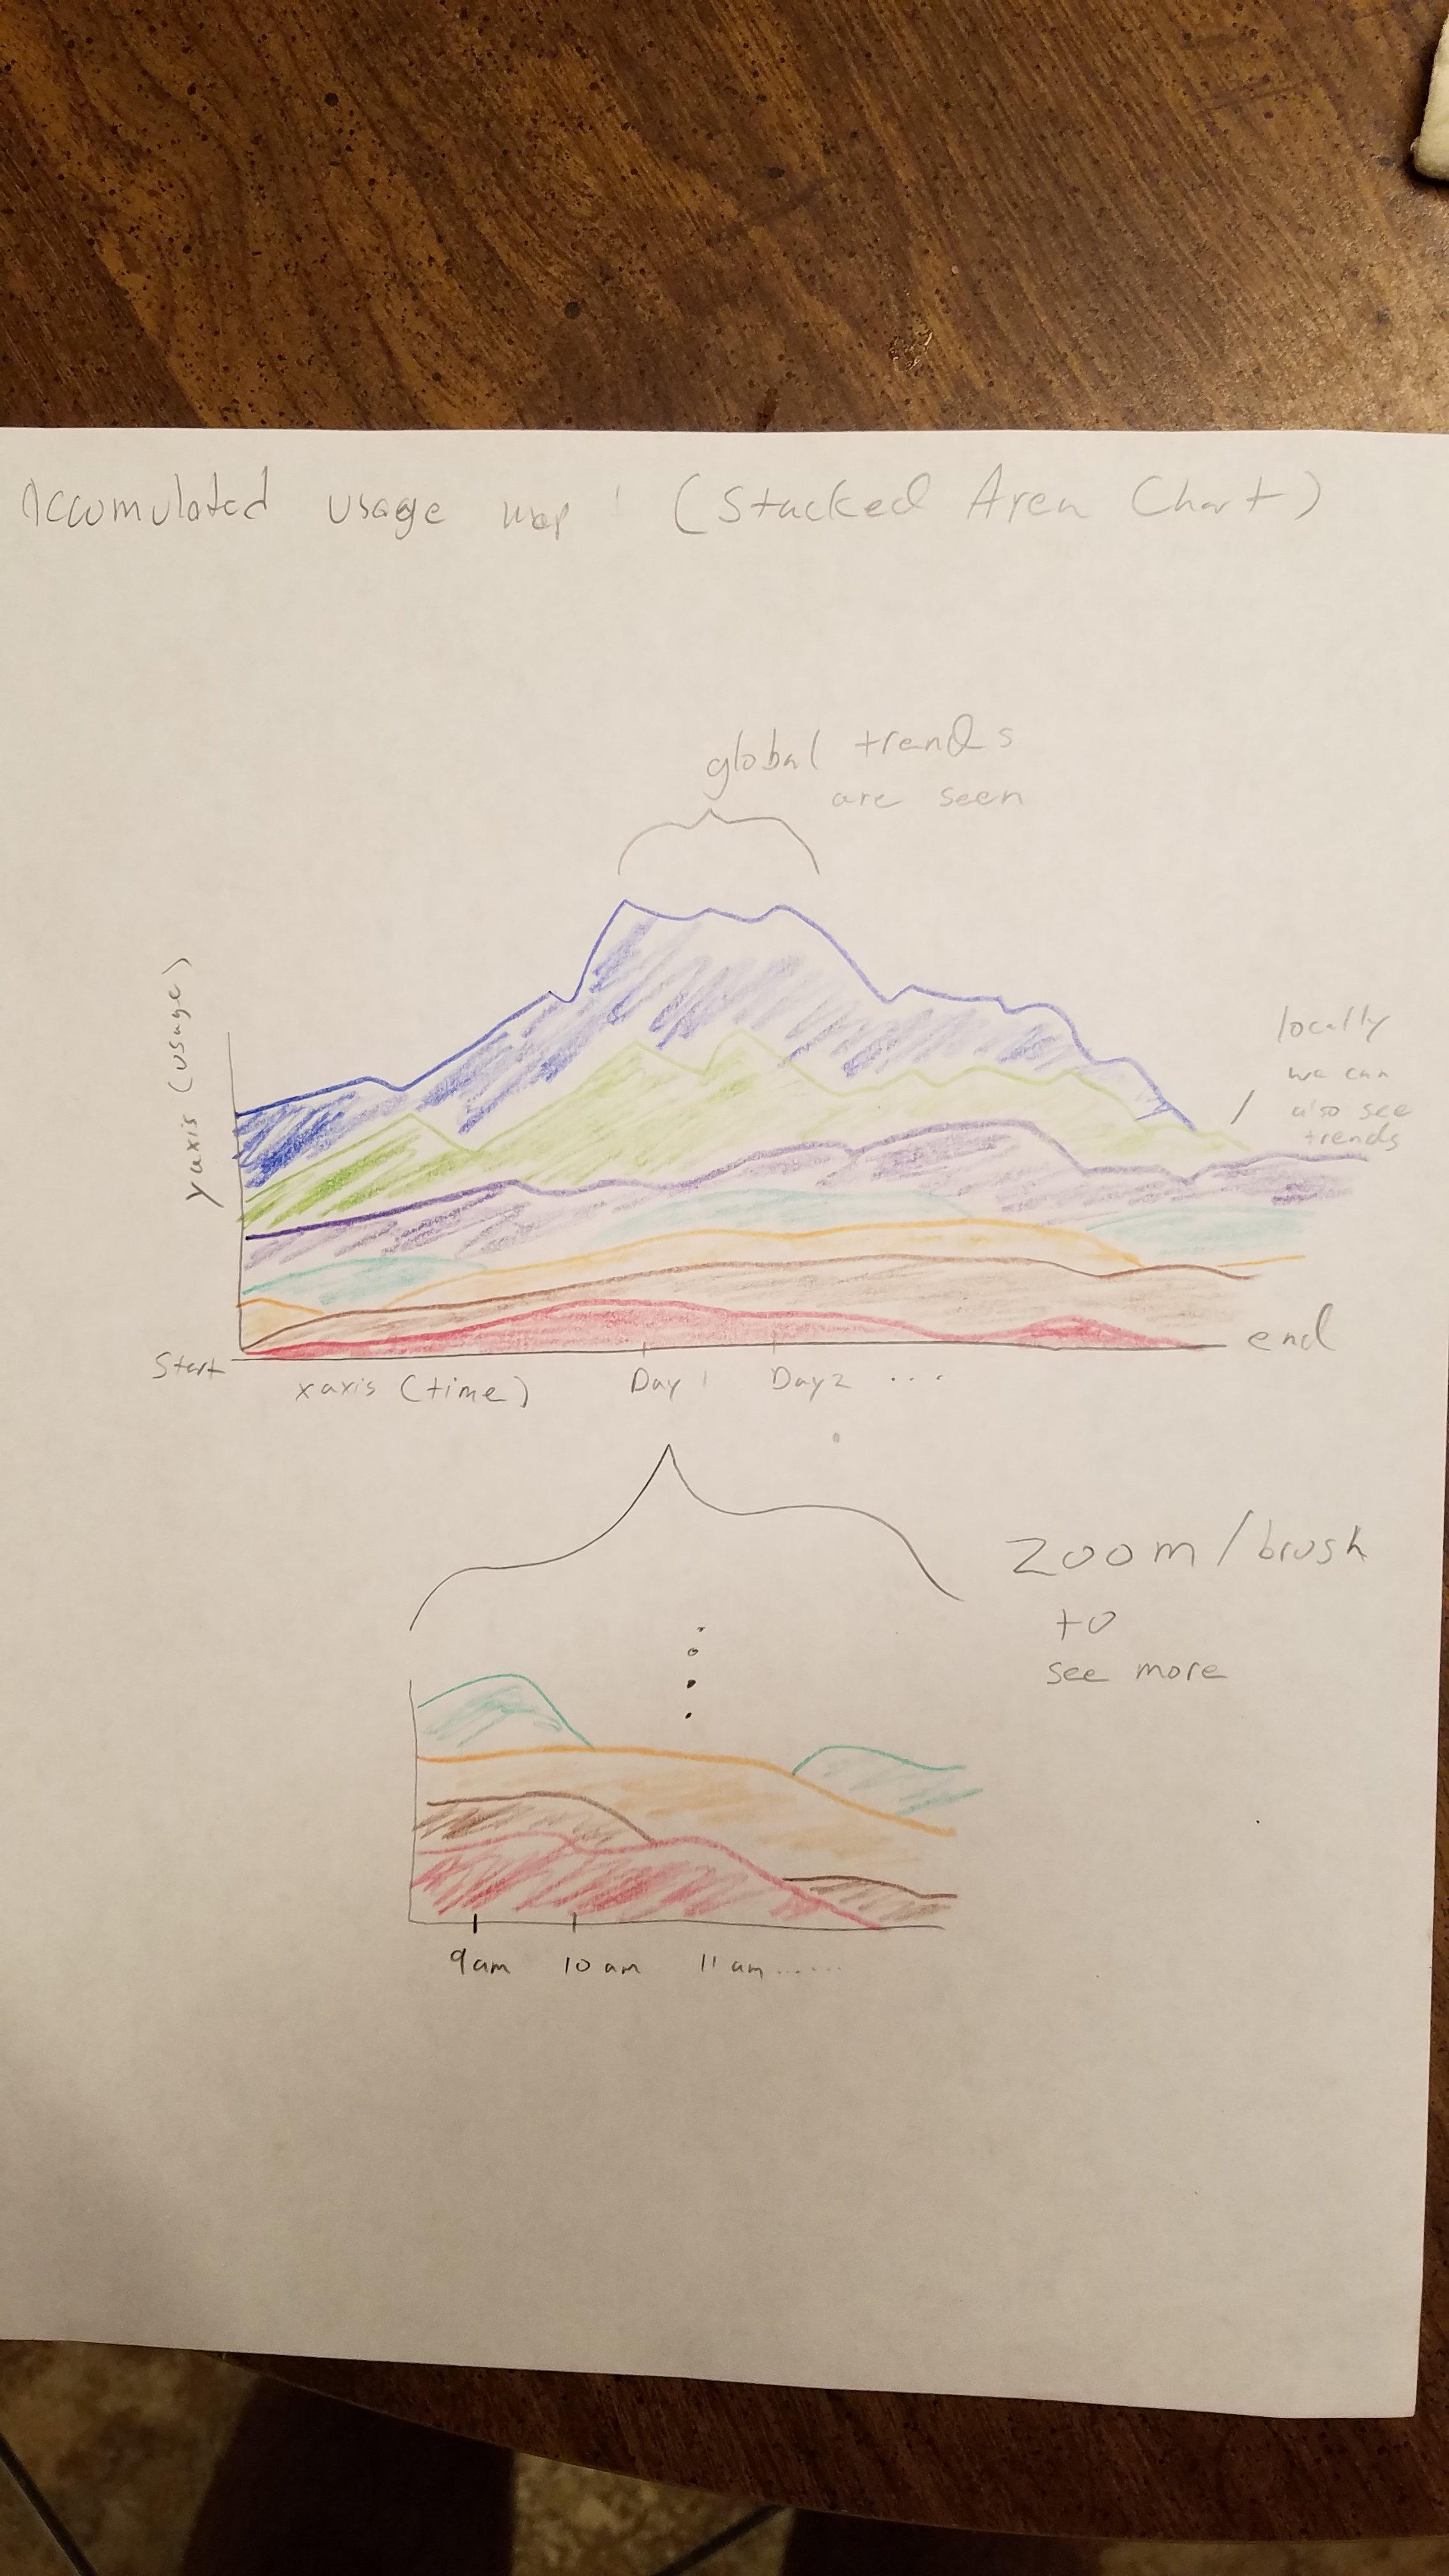 Accumulated usage map (Stacked Area Chart)
global trends
are seen
y axis (usage)
locally
we can
also see
trends
Start
end
x axis (time)
Day 1
Day 2 ...
zoom/brush
to
see more
9am 10 am 11 am ......